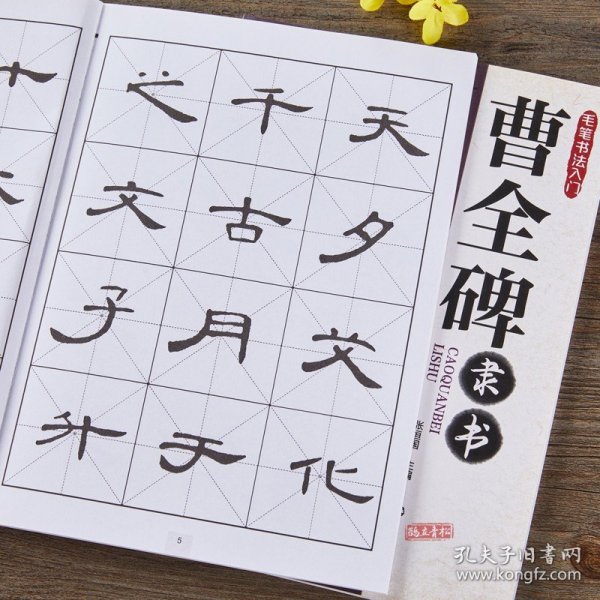 之千天
文古夕
子月父
升于化
5
毛笔书法入门
曹全碑
隶书
CAOQUANBEI
LISHU
主编
孔夫子旧書网
www.kongfz.com